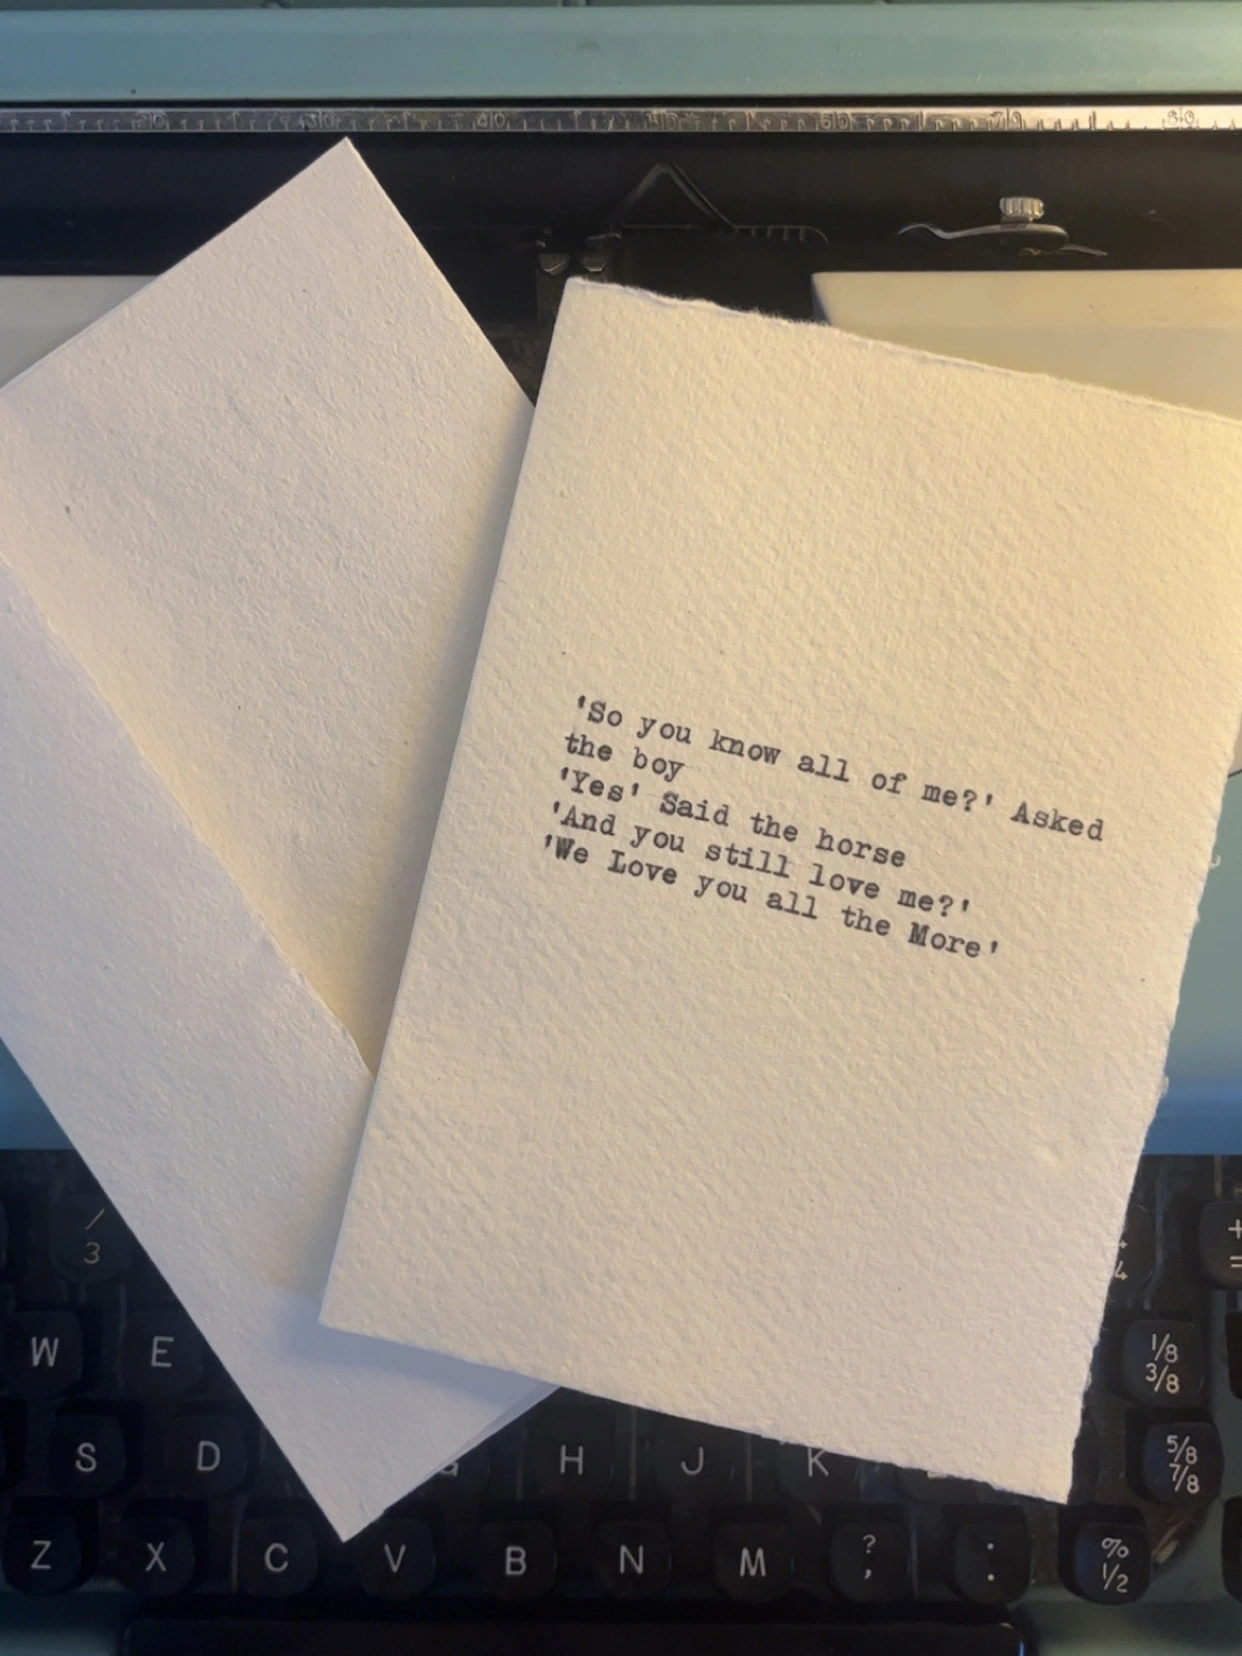 20 30 40 50 60 70 80
'So you know all of me?' Asked
the boy
'Yes' Said the horse
'And you still love me?'
'We Love you all the More'
/
3
4
+
=
W E 1/8
3/8
S D G H J K 5/8
7/8
Z X C V B N M ?
, : . %
1/2